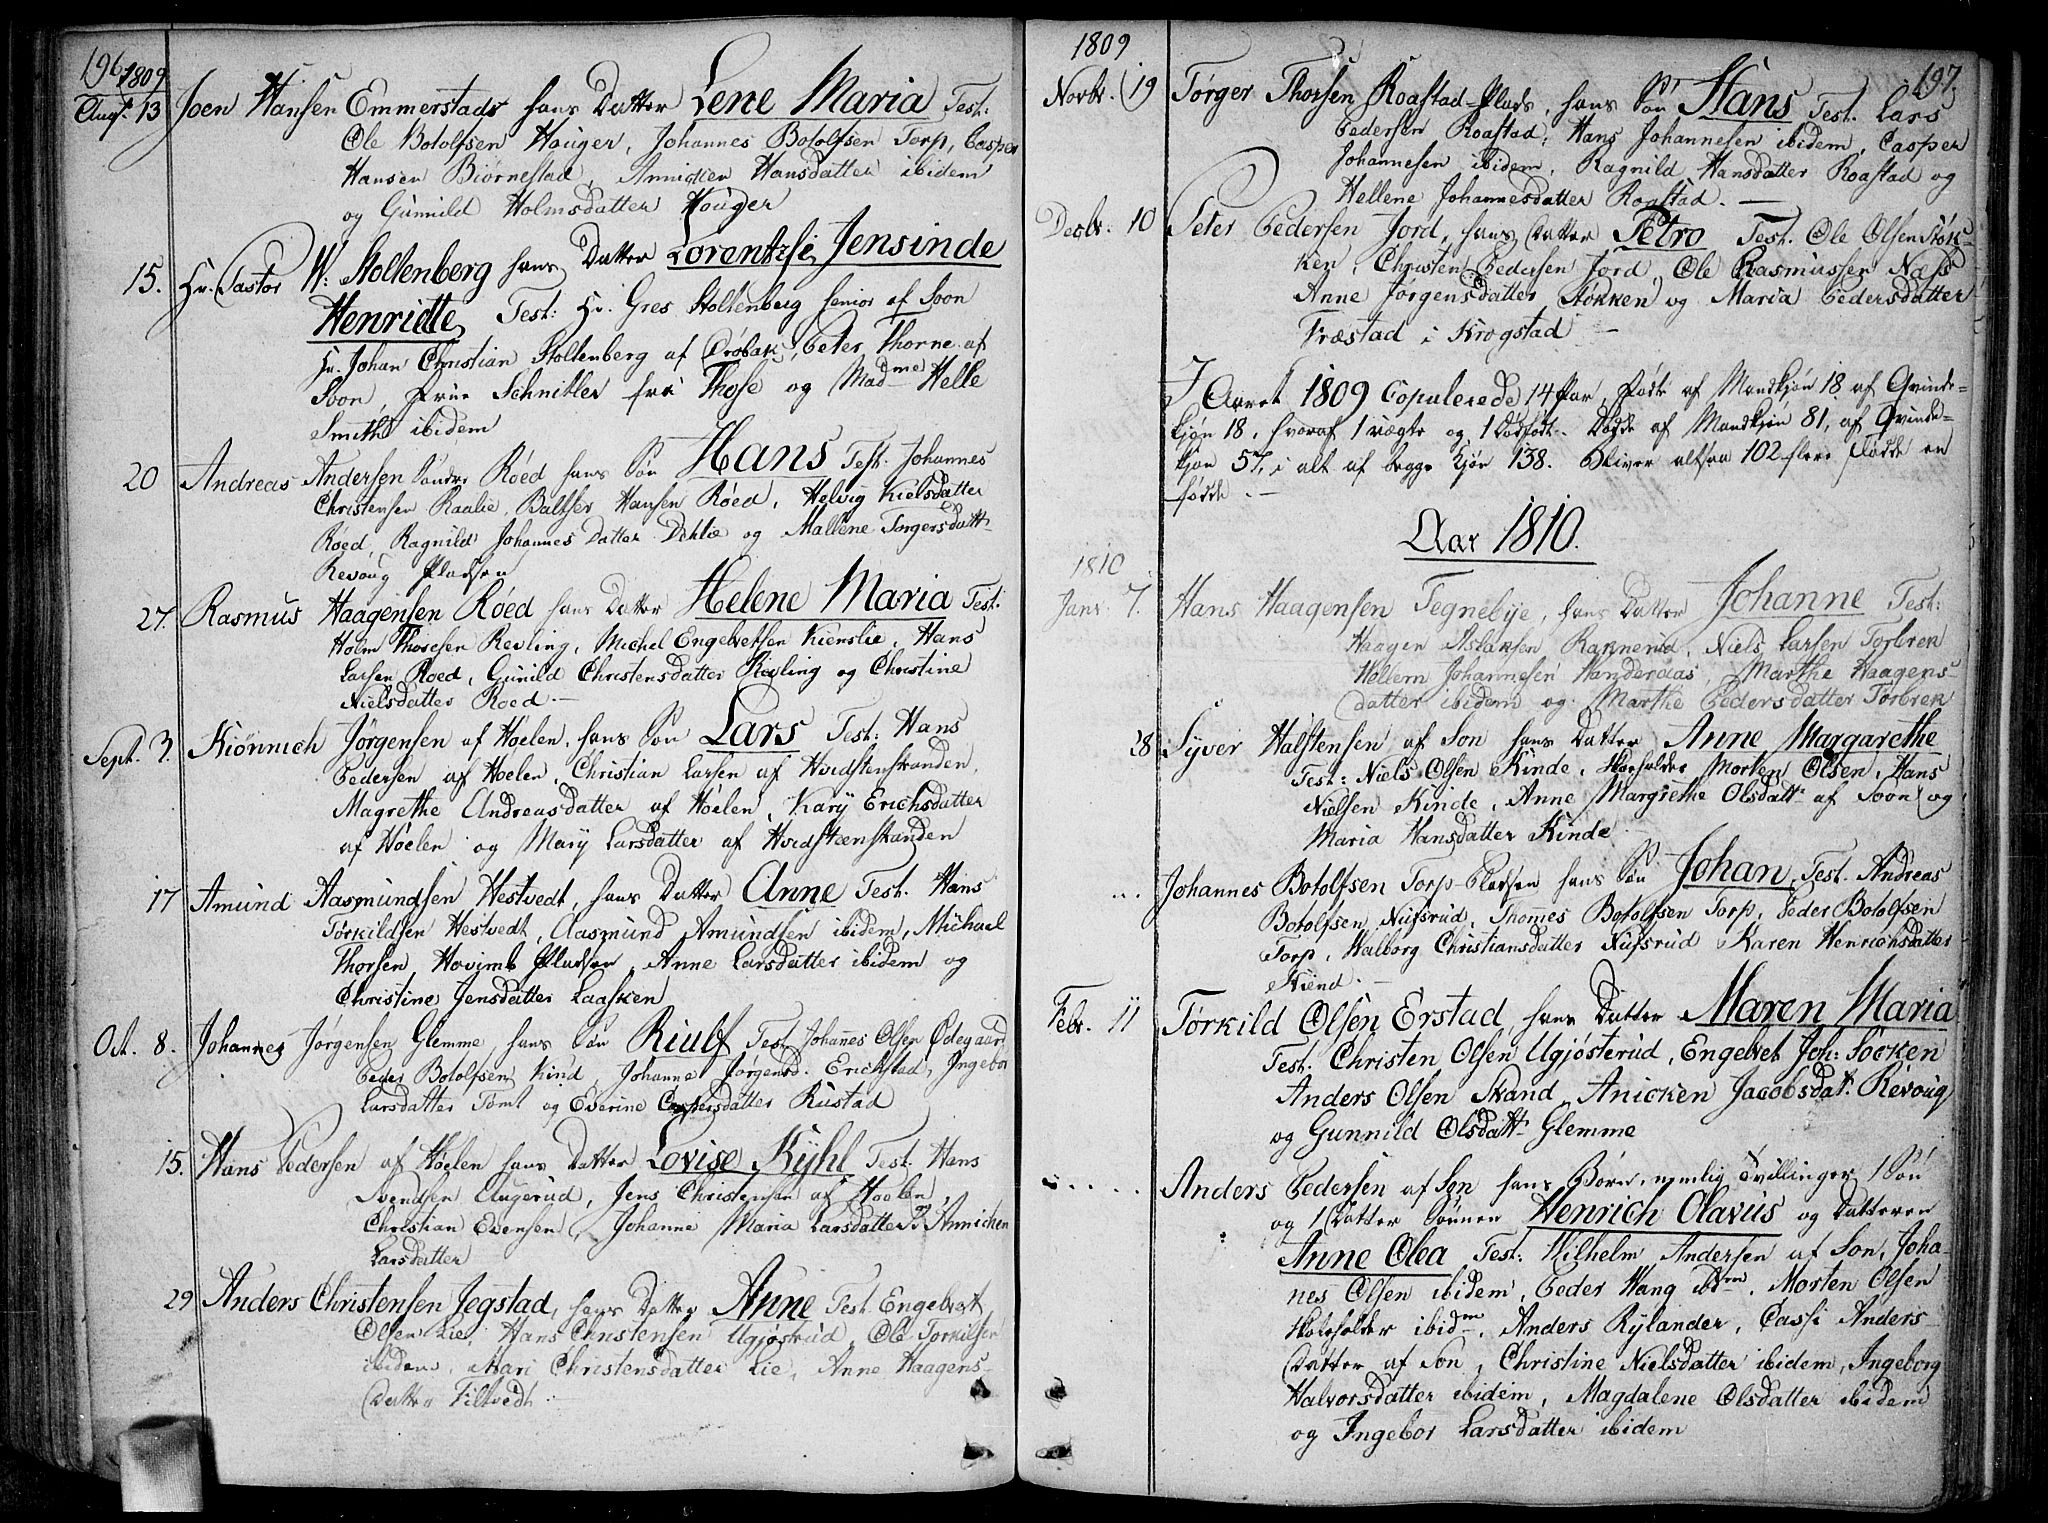 196. 1809
Aug. 13 Joen Hansen Emmerstads hans Datter Lene Maria Test:
Ole Botolfsen Houger, Johannes Botolfsen Torp, Casper
Hansen Biørnestad, Annicken Hansdatter ibidem
og Gunnild Holmsdatter Houger
15. Hr. Pastor W. Stoltenberg hans Datter Lorentzsi Jensinde
Henriette, Test: Hr. Gres Stoltenberg senior af Soon
Hr. Johan Christian Stoltenberg af Drøbak, Peter Thorne af
Soon, Frue Schnitler fra Those og Madme Helle
Smith ibidem
20 Andreas Andersen Søndre Røed hans Søn Hans Test. Johannes
Christensen Raalie, Baltser Hansen Røed, Helvig Kielsdatter
Røed, Ragnild Johannes Datter Dehlie og Mallene Torgersdatt
Revoug Pladsen
27. Rasmus Haagensen Røed hans Datter Helene Maria Test.
Holm Thoresen Revling, Michel Engelvetsen Kienslie, Hans
Larsen Roed, Gunild Christensdatter Revling og Christine
Nielsdatter Roed.
Sept. 3. Kiønnich Jørgensen af Hølen, hans Søn Lars Test: Hans
Pedersen af Høelen, Christian Larsen af Hvidstenstranden,
Magrethe Andreasdatter af Høelen, Kary Erichsdatter
af Høelen og Mary Larsdatter af Hvidsteenstranden
17 Amund Aasmundsen Hestvedt, hans Datter Anne Test. Hans
Tørkildsen Hestvedt, Aasmund Amundsen ibidem, Michael
Thorsen, Hovimb Pladsen, Anne Larsdatter ibidem og
Christine Jensdatter Laasken
Oct. 8. Johannes Jørgensen Glemme, hans Søn Riulf Test. Johannes Olsen Ødegaard
Peder Botolfsen Kind, Johanne Jørgensd. Erichstad, Ingebor
Larsdatter Tomt og Everine Caspersdatter Rustad
15. Hans Pedersen af Høelen hans Datter Lovise Kyhl Test. Hans
Svendsen Augerud, Jens Christensen af Hoelen,
Christian Evensen, Johanne Maria Larsdatter og Annichen
Larsdatter
29 Anders Christensen Jegstad, hans Datter Anne Test. Engelvet
Olsen Lie, Hans Christensen Ugjøstrud, Ole Torkilsen
ibidem, Mari Christensdatter Lie, Anne Haagens-
Datter Filtvedt.
1809 197.
Novbr. 19 Tørger Thorsen Roastad-Plads, hans Søn Hans Test. Lars
Pedersen Roastad, Hans Johannesen ibidem, Casper
Johannesen ibidem, Ragnild Hansdatter Roastad og
Hellene Johannesdatter Roastad.
Decbr. 10 Peter Pedersen Jord, hans Datter Petro Test. Ole Olsen Støk-
ken, Christen Pedersen Jord, Ole Rasmussen Næss
Anne Jørgensdatter Støkken og Maria Pedersdatter
Træstad i Krogstad
I Aaret 1809 Copulerede 14 Par, Fødte af Mandkjøn 18 af Qvinde-
kjøn 18, hvoraf 1 uægte og 1 Dødfødt. Døde af Mandkjøn 81, af Qvinde-
kjøn 57, i alt af begge Kjøn 138. Bliver altsaa 102 flere Døde en
fødde.
Aar 1810.
1810
Janr. 7. Hans Haagensen Tegnebye, hans Datter Johanne Test:
Haagen Aslaksen Rannerud, Niels Larsen Torbrek
Hellem Johannesen Wanderaas, Marthe Haagens-
datter ibidem og Marthe Pedersdatter Torbrek
28 Syver Halstensen af Son hans Datter Anne Margarethe
Test: Niels Olsen Kinde, Skoeholder Morten Olsen, Hans
Nielsen Kinde, Anne Margrethe Olsdatt af Soon og
Maria Hansdatter Kinde
... Johannes Botolfsen Torp-Pladsen hans Søn Johan, Test. Andreas
Botolfsen, Nufsrud, Thomes Botolfsen Torp, Peder Botolfsen
Torp, Walborg Christiansdatter Nufsrud Karen Henrichsdatter
Kiend.
Febr. 11 Tørkild Olsen Erstad hans Datter Maren Maria
Test. Christen Olsen Ugjøsterud, Engelvet Joh: Socken
Anders Olsen Strand, Anicken Jacobsdat: Revoug
og Gunnild Olsdatt Glemme
..... Anders Pedersen af Son hans Børn, nemlig Tvillinger, 1 Søn
og 1 Datter Sønnen Henrich Olavius og Datteren
Anne Olea Test: Wilhelm Andersen af Son, Joha-
nes Olsen ibidem, Peder Wang ibdm, Morten Olsen
Skoleholder ibidm, Anders Rylander, Cassi Anders-
Datter af Son, Christine Nielsdatter ibidem, Ingeborg
Halvorsdatter ibidem, Magdalene Olsdatter ibidem
og Ingebor Larsdatter ibidem